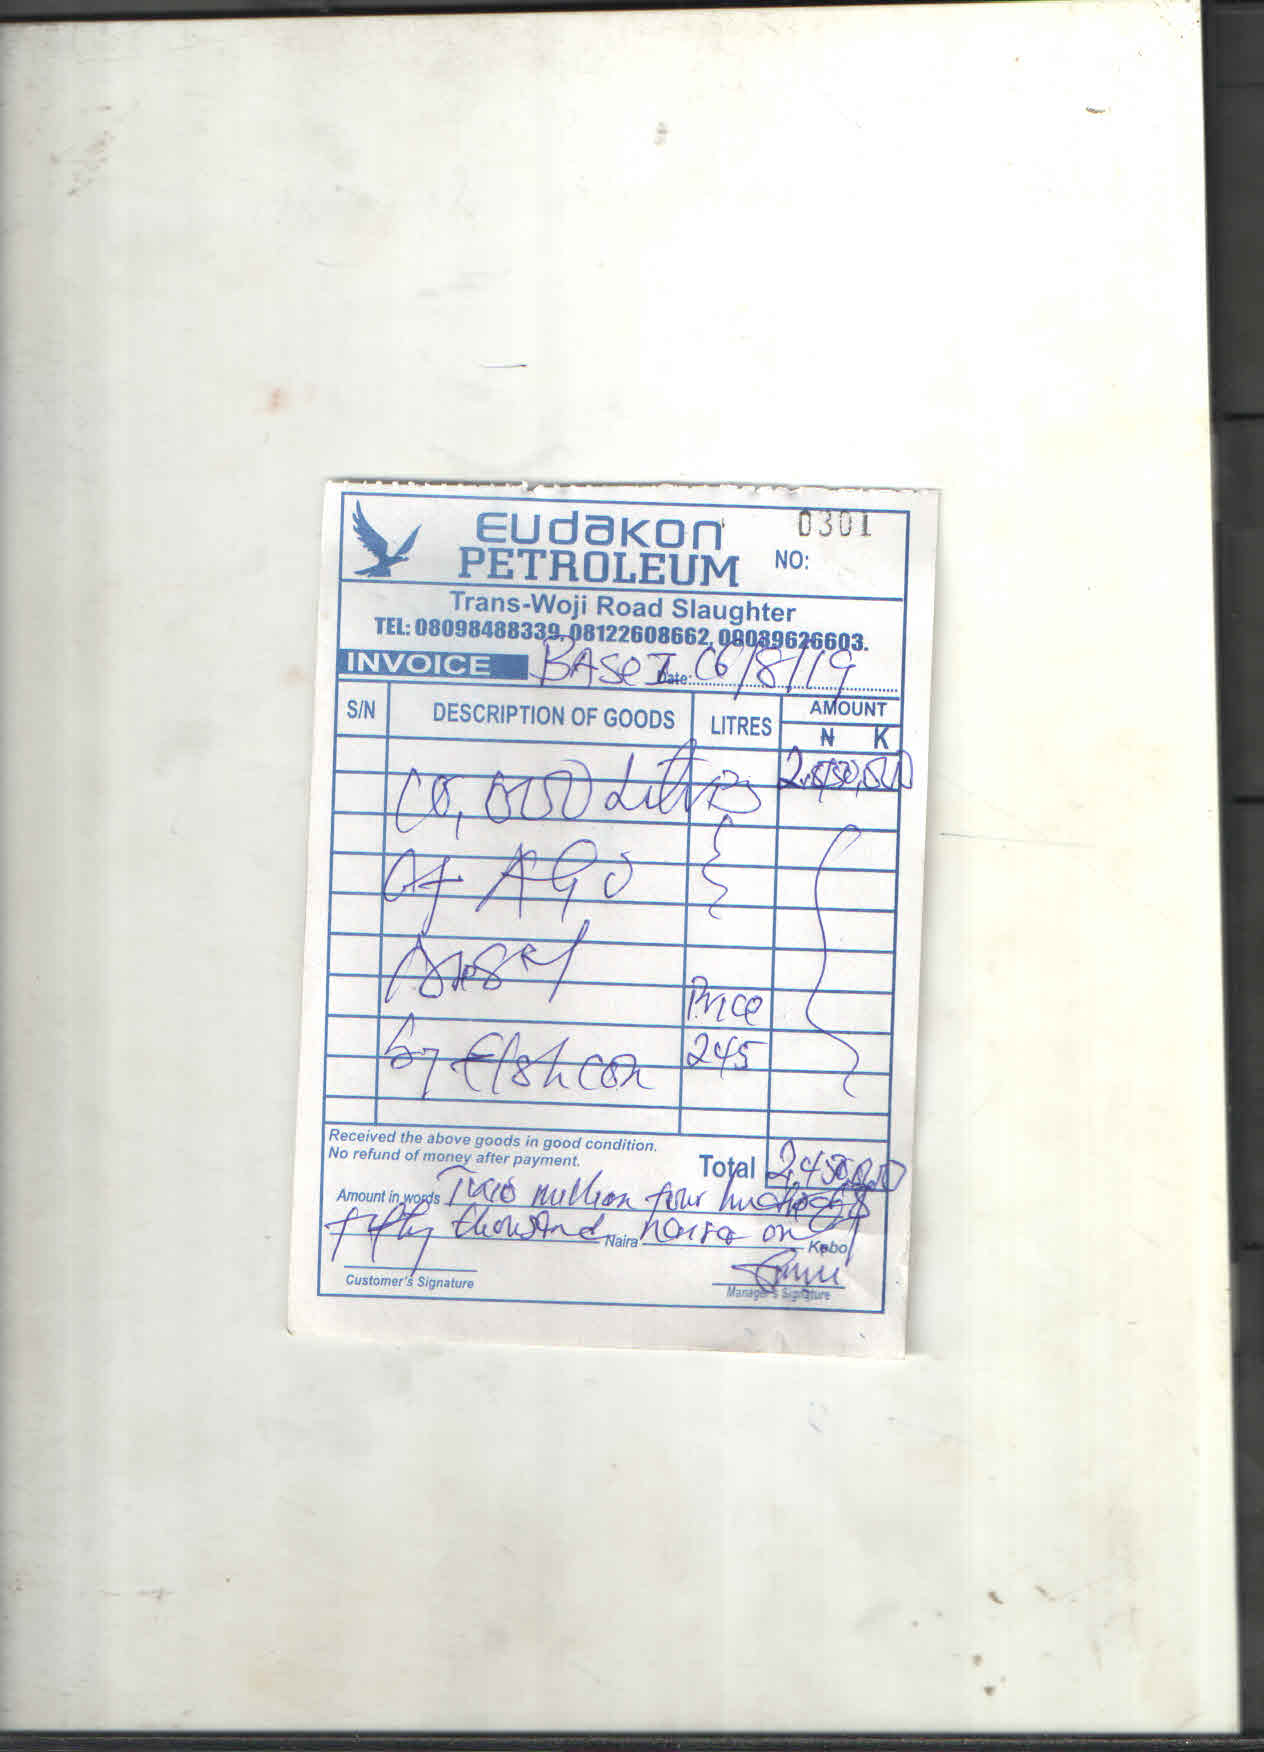 EUDAKON
PETROLEUM
0301
NO:
Trans-Woji Road Slaughter
TEL: 08098488339, 08122608662, 08089626603.
INVOICE BASE I Date: 06/8/19
S/N DESCRIPTION OF GOODS LITRES AMOUNT
₦ K
10,000 Litres
Of AGO
Price
by Fishcon 245
Received the above goods in good condition.
No refund of money after payment.
Total 2,450,000
Amount in words Two million four hundred &
fifty thousand Naira naira only Kobo
Customer's Signature
Manager's Signature